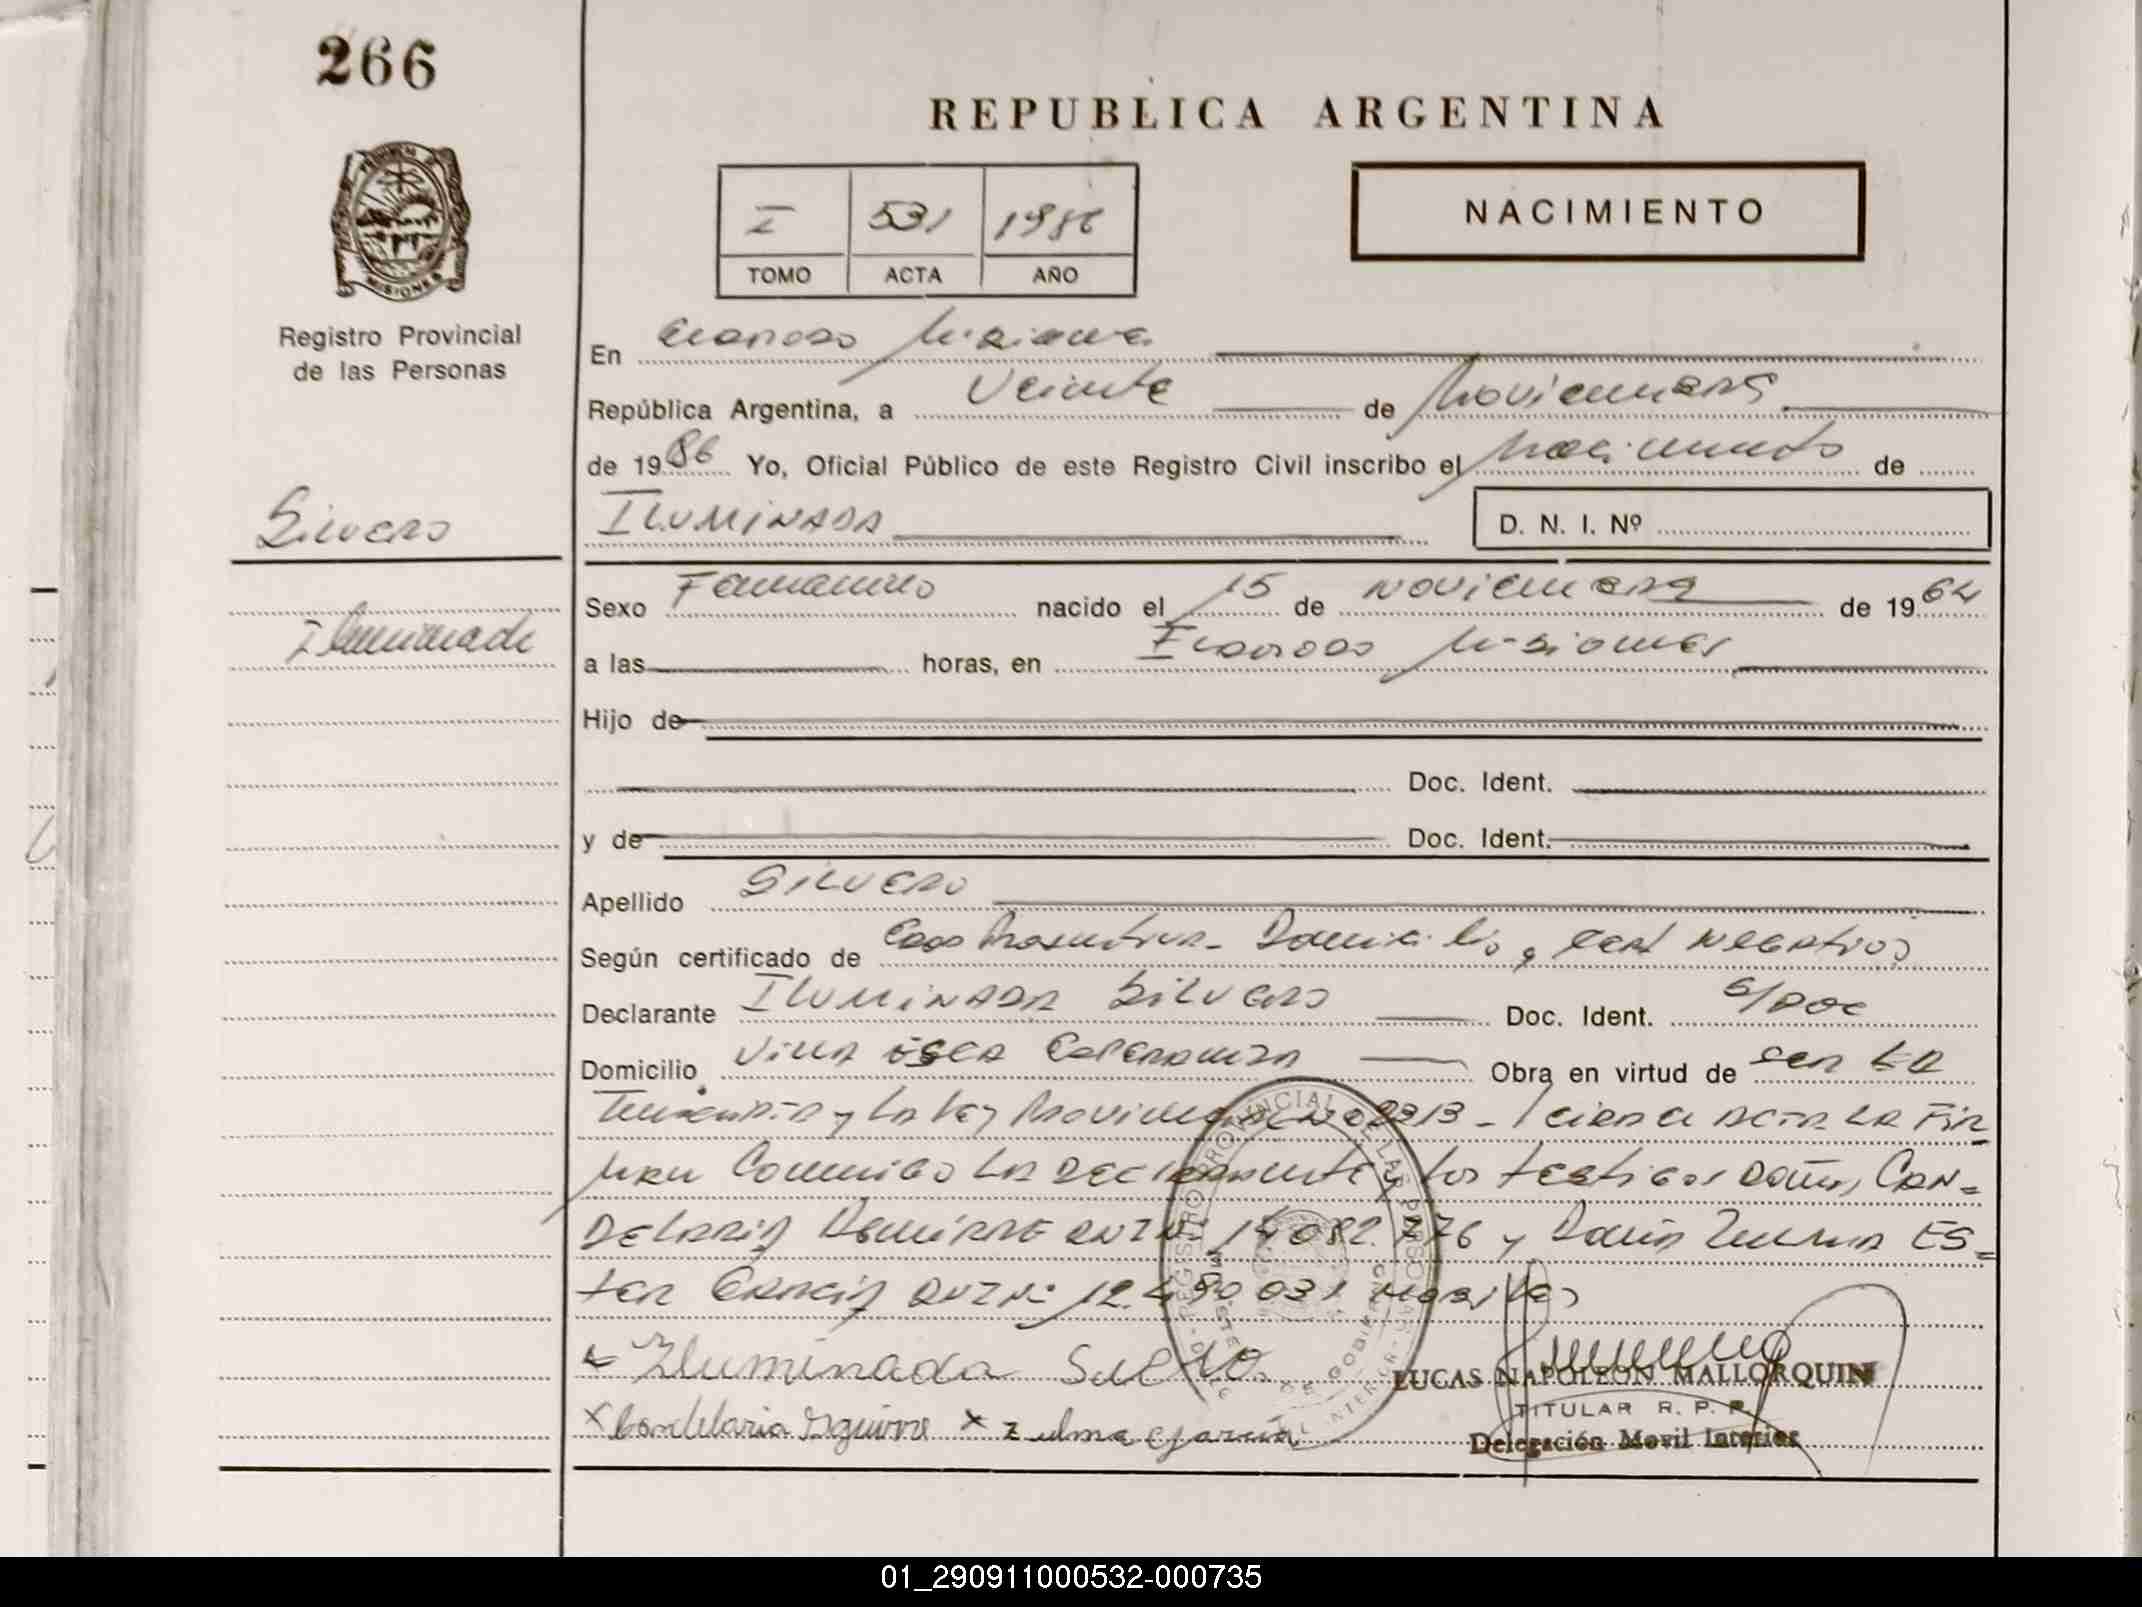 266
REPUBLICA ARGENTINA
MISIONES
Registro Provincial
de las Personas
I 531 1986
TOMO ACTA AÑO
NACIMIENTO
En Misiones
República Argentina, a Veinte de Noviembre
de 1986 Yo, Oficial Público de este Registro Civil inscribo el Nacimiento de
Silvero
ILUMINADA
D. N. I. Nº
Iluminada
Sexo Femenino nacido el 15 de Noviembre de 1964
a las horas, en Misiones
Hijo de
Doc. Ident.
y de Doc. Ident.
Apellido SILVERO
Según certificado de Domicilio, Cert Negativo
Declarante ILUMINADA SILVERO Doc. Ident. S/Doc
Domicilio Villa Esperanza Obra en virtud de ser la
y la Ley Provincial Nº la Fir
man Conmigo la Declarante y los testigos Doña, CAN=
DELARIA DNI Nº 14.082.776 y Doña Zulma ES=
ter García DNI Nº 12.490.031
Iluminada
x Candelaria x Zulma Garcia
LUCAS NAPOLEON MALLORQUIN
TITULAR R. P. P.
Delegación Movil Interior
REGISTRO PROVINCIAL DE LAS PERSONAS
01_290911000532-000735